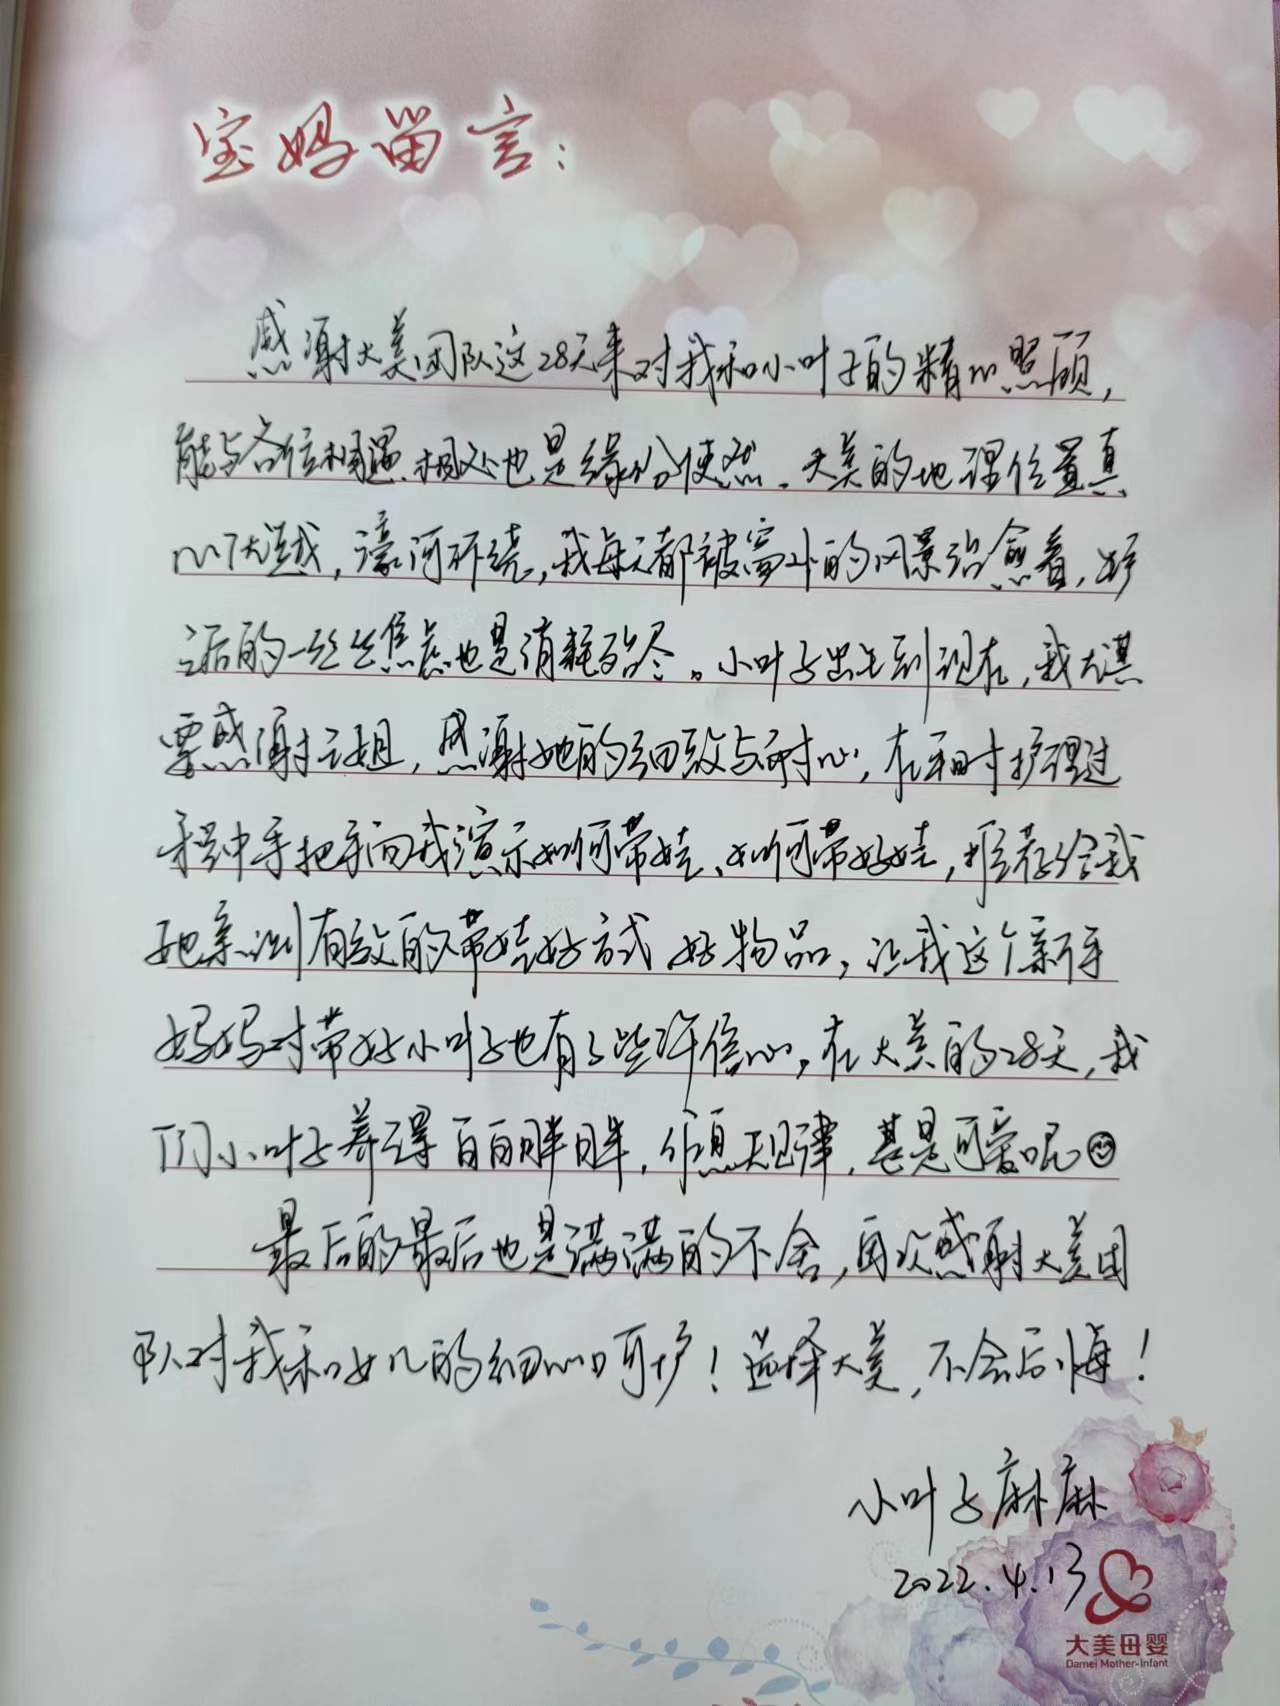 宝妈留言：
感谢大美团队这28天来对我和小叶子的精心照顾，
能与各位相遇、相处也是缘分使然。大美的地理位置真
心优越，濠河环绕，我每天都被窗外的风景治愈着，好
之后的一丝丝焦虑也是消耗殆尽。小叶子出生到现在，我尤其
要感谢云姐，感谢她的细致与耐心，在平时护理过
程中手把手向我演示如何带娃、如何带好娃，推荐给我
她亲测有效的带娃好方式 好物品，让我这个新手
妈妈对带好小叶子也有了些许信心，在大美的28天，我
们小叶子养得白白胖胖，作息规律，甚是可爱呢
最后的最后也是满满的不舍，再次感谢大美团
队对我和女儿的细心呵护！选择大美，不会后悔！
小叶子麻麻
2022.4.13
大美母婴
Damei Mother-Infant